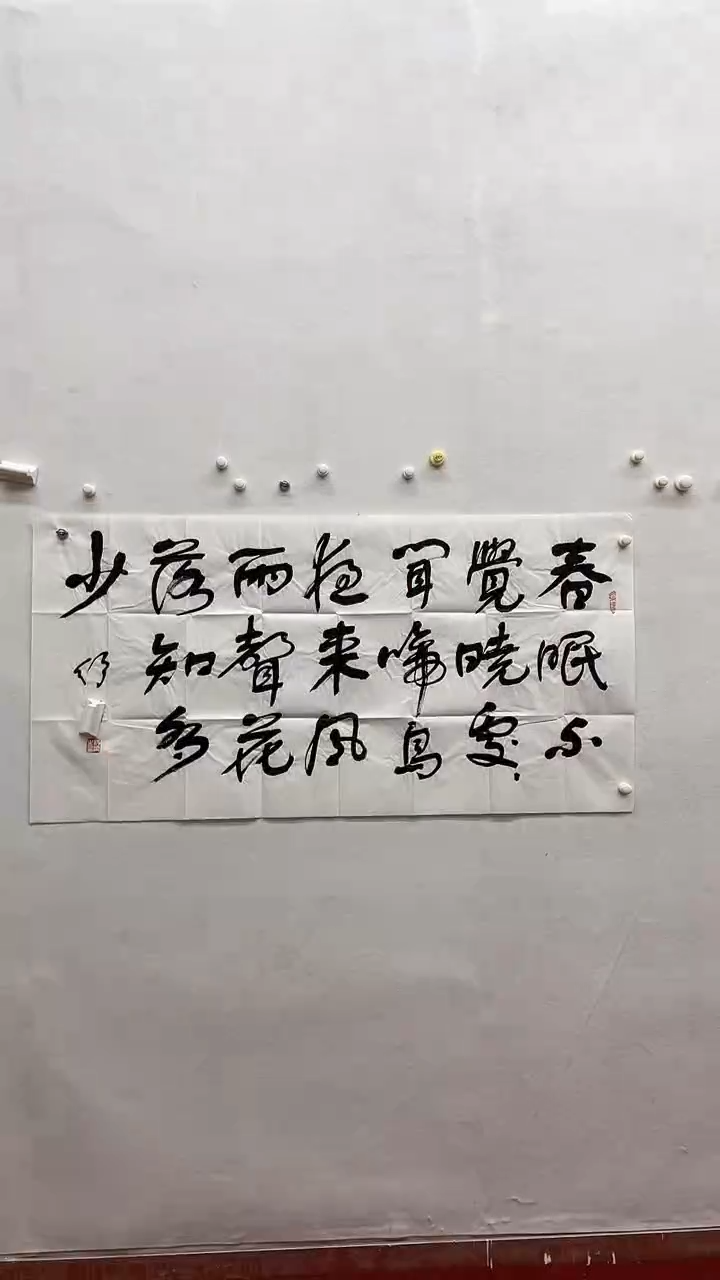 春眠不
覺曉處々
聞啼鳥
夜来風
雨聲花
落知多
少